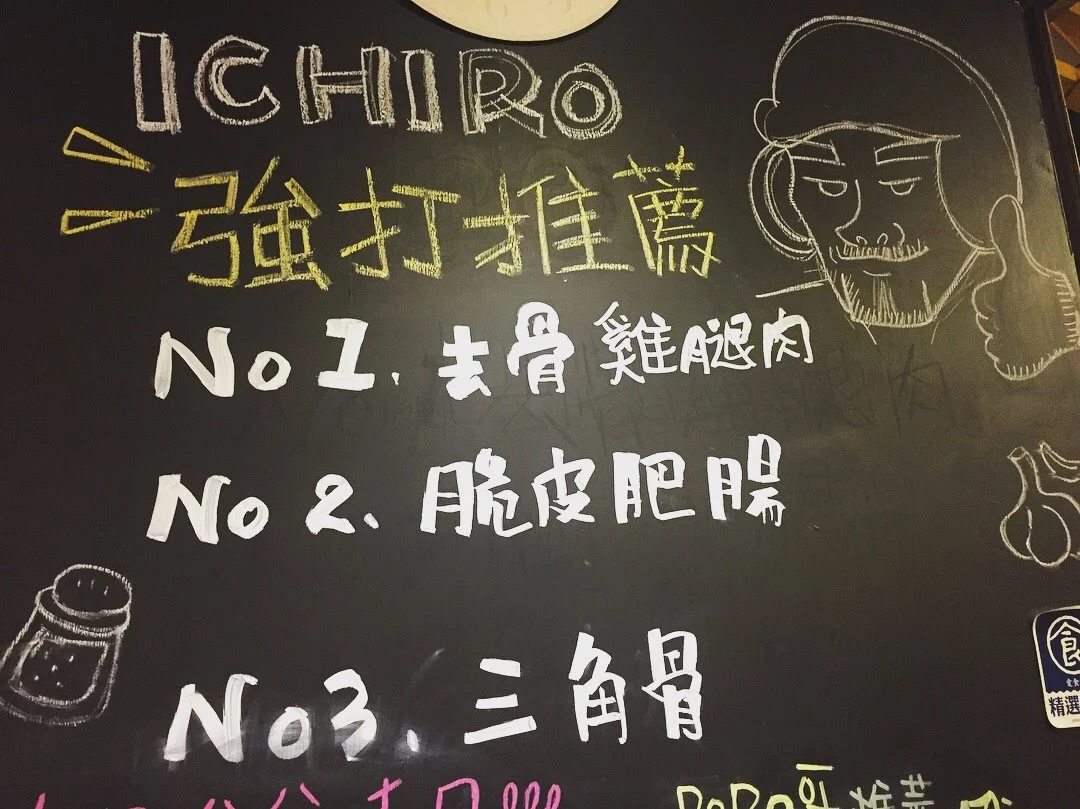 ICHIRO
強打推薦
No 1. 去骨雞腿肉
No 2、脆皮肥腸
No3、三角骨
食
精選